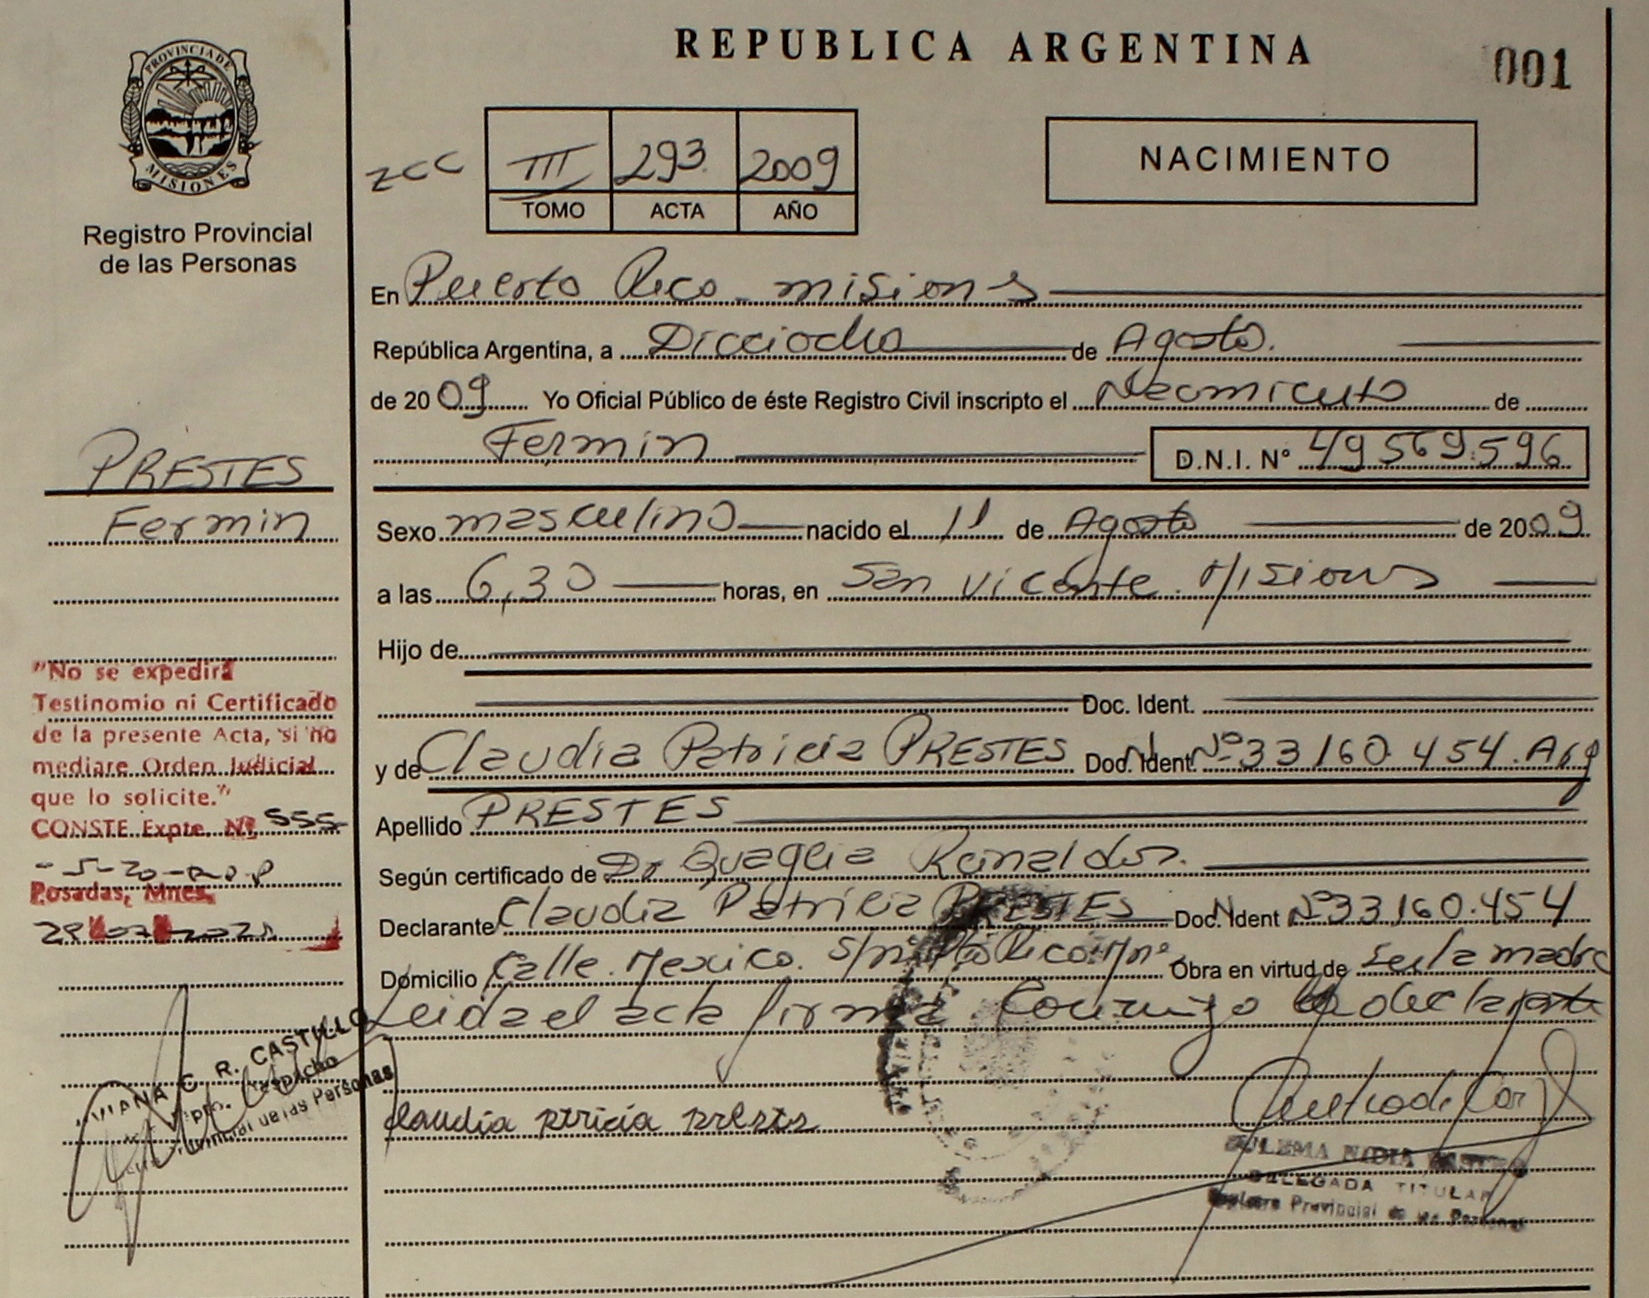 REPUBLICA ARGENTINA
001
PROVINCIA DE
MISIONES
Registro Provincial
de las Personas
zcc
III 293 2009
TOMO ACTA AÑO
NACIMIENTO
En Puerto Rico - misiones
República Argentina, a Dieciocho de Agosto.
de 2009 Yo Oficial Público de éste Registro Civil inscripto el Nacimiento de
Fermin D.N.I. N° 49569.596
PRESTES
Fermin
Sexo masculino nacido el 11 de Agosto de 2009
a las 6,30 horas, en San Vicente Misiones
Hijo de
Doc. Ident.
y de Claudia Patricia PRESTES Doc. Ident. N° 33160.454. Arg
Apellido PRESTES
Según certificado de Dr Quaglia Ronaldo.
Declarante Claudia Patricia PRESTES Doc. Ident N° 33160.454
Domicilio Calle. Mexico. S/n° Pto Rico. Mnes Obra en virtud de ser la madre
Leida el acta firma conmigo la declarante
claudia patricia prestes
"No se expedirá
Testinomio ni Certificado
de la presente Acta, si no
mediare Orden Judicial
que lo solicite."
CONSTE Expte. Nº 555
Posadas, Mnes.
VIVIANA C. R. CASTILLO
Dpto. Despacho
Provincial de las Personas
ZULEMA NIDIA
DELEGADA TITULAR
Registro Provincial de las Personas